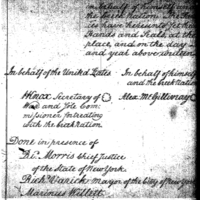 in behalf of himself and
the Creek Nation
ties have hereunto set their
Hands and Seals at the
place, and on the day
and year above written
In behalf of the United States
In behalf of himself
and the Creek Nation
HKnox Secretary of
War and Sole Com
missioner for treating
with the Creek Nation
Alex McGillivray
Done in presence of
Rd. Morris Chief Justice
of the State of New York
Richd Varick Mayor of the City of New York
Marinus Willett